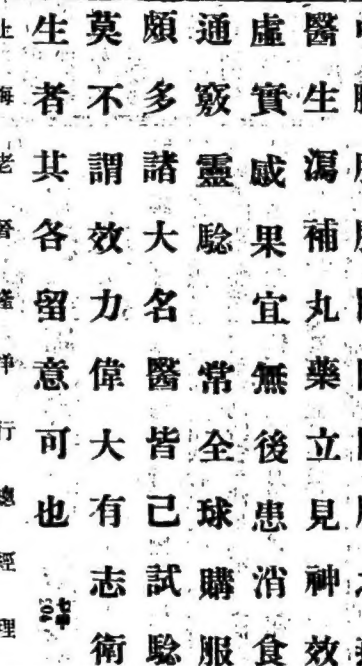 醫生瀉補丸藥立見神效
虛實感果宜無後患消食
通竅靈驗常全球購服
頗多諸大名醫皆己試驗
莫不謂效力偉大有志衛
生者共各留意可也
上海老晉隆洋行總經理